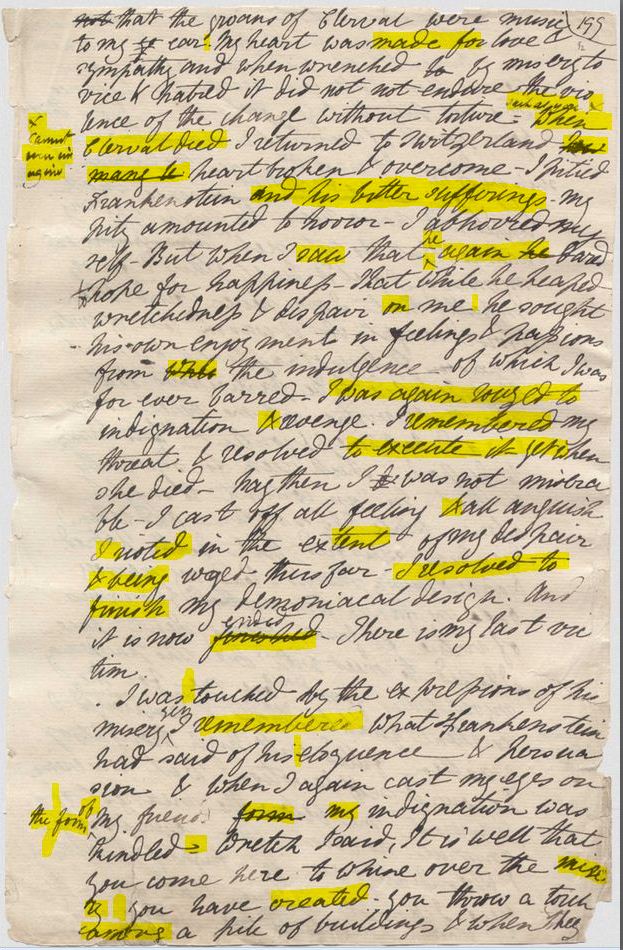 not that the groans of Clerval were music 199
to my ear! My heart was made for love &
sympathy and when wrenched by misery to
vice & hatred it did not not endure the vio
lence of the change without torture - when
Clerval died I returned to Switzerland
heart broken & overcome - I pitied
Frankenstein and his bitter sufferings - my
pity amounted to horror - I abhorred my
self - But when I saw that he again he dared
hope for happiness - that while he heaped
wretchedness & dispair on me he sought
his own enjoyment in feelings & passions
from the indulgence of which I was
for ever barred - I was again rouzed to
indignation & revenge. I remembered my
threat & resolved to execute it - yet when
she died - nay then I was not misera
ble - I cast off all feeling & all anguish
I rioted in the extent of my despair
& being urged thus far - I resolved to
finish my demoniacal design. And
it is now finished ended - There is my last vic
tim.
I was touched by the expressions of his
misery yet I remembered what Frankenstein
had said of his eloquence & persua
sion & when I again cast my eyes on
the form of my friend form my indignation was
kindled - Wretch I said, It is well that
you come here to whine over the mise
ry you have created - you throw a torch
among a pile of buildings & when they